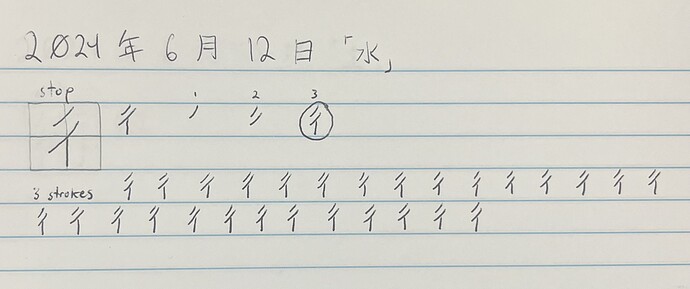 2024 年 6 月 12 日 「水」
stop 1 2 3
彳 彳 丿 彳
3 strokes 彳 彳 彳 彳 彳 彳 彳 彳 彳 彳 彳 彳 彳 彳 彳
彳 彳 彳 彳 彳 彳 彳 彳 彳 彳 彳 彳 彳